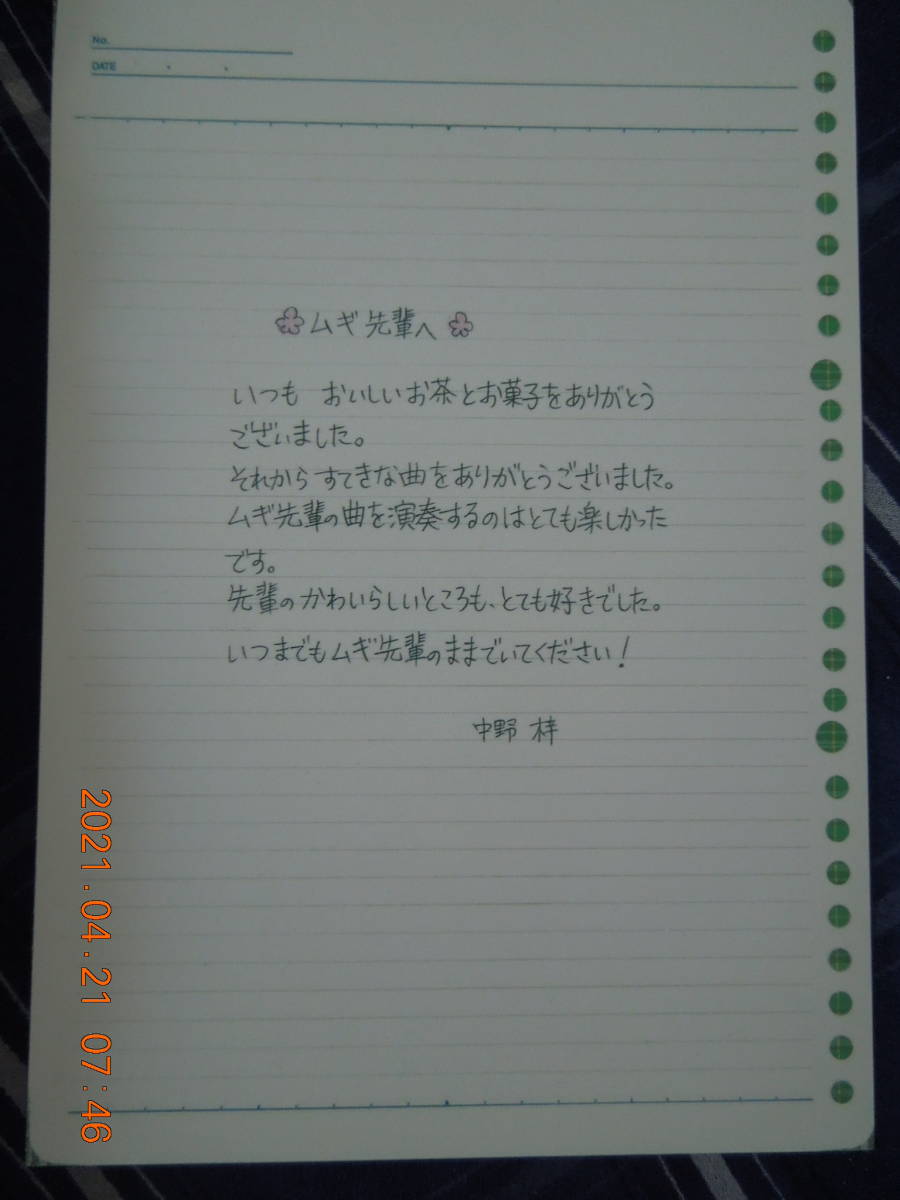 No.
DATE
ムギ先輩へ
いつも おいしいお茶とお菓子をありがとう
ございました。
それからすてきな曲をありがとうございました。
ムギ先輩の曲を演奏するのはとても楽しかった
です。
先輩のかわいらしいところも、とても好きでした。
いつまでもムギ先輩のままでいてください!
中野 梓
2021.04.21 07:46